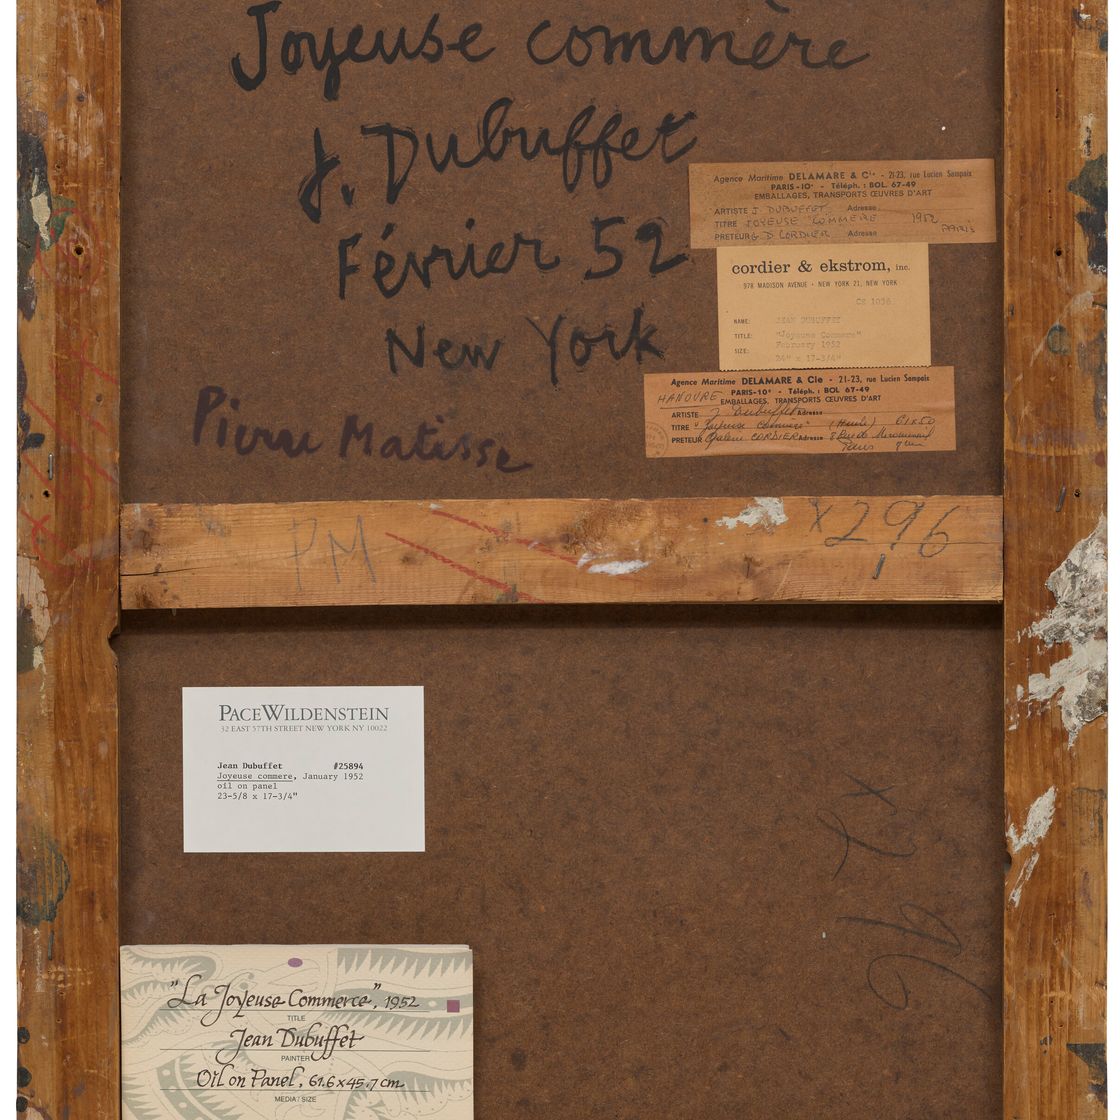 Joyeuse commère
J. Dubuffet
Février 52
New York
Pierre Matisse
Agence Maritime DELAMARE & Cie - 21-23, rue Lucien Sampaix
PARIS-10e - Téléph. : BOL. 67-49
EMBALLAGES, TRANSPORTS ŒUVRES D'ART
ARTISTE J. DUBUFFET Adresse
TITRE JOYEUSE COMMERE 1952
PRETEUR G D. CORDIER Adresse PARIS
cordier & ekstrom, inc.
978 MADISON AVENUE • NEW YORK 21, NEW YORK
CE 1036
NAME: JEAN DUBUFFET
TITLE: "Joyeuse Commere"
February 1952
SIZE: 24" x 17-3/4"
Agence Maritime DELAMARE & Cie - 21-23, rue Lucien Sampaix
HANOVRE PARIS-10e - Téléph. : BOL 67-49
EMBALLAGES, TRANSPORTS ŒUVRES D'ART
ARTISTE J Dubuffet Adresse
TITRE "Joyeuse commère" (Huile) 61x50
PRETEUR Galerie CORDIER Adresse 8 Rue de Miromesnil
Paris
PM
x296
PACEWILDENSTEIN
32 EAST 57TH STREET NEW YORK NY 10022
Jean Dubuffet #25894
Joyeuse commere, January 1952
oil on panel
23-5/8 x 17-3/4"
x 296
"La Joyeuse Commerce", 1952
TITLE
Jean Dubuffet
PAINTER
Oil on Panel, 61.6 x 45.7 cm
MEDIA / SIZE